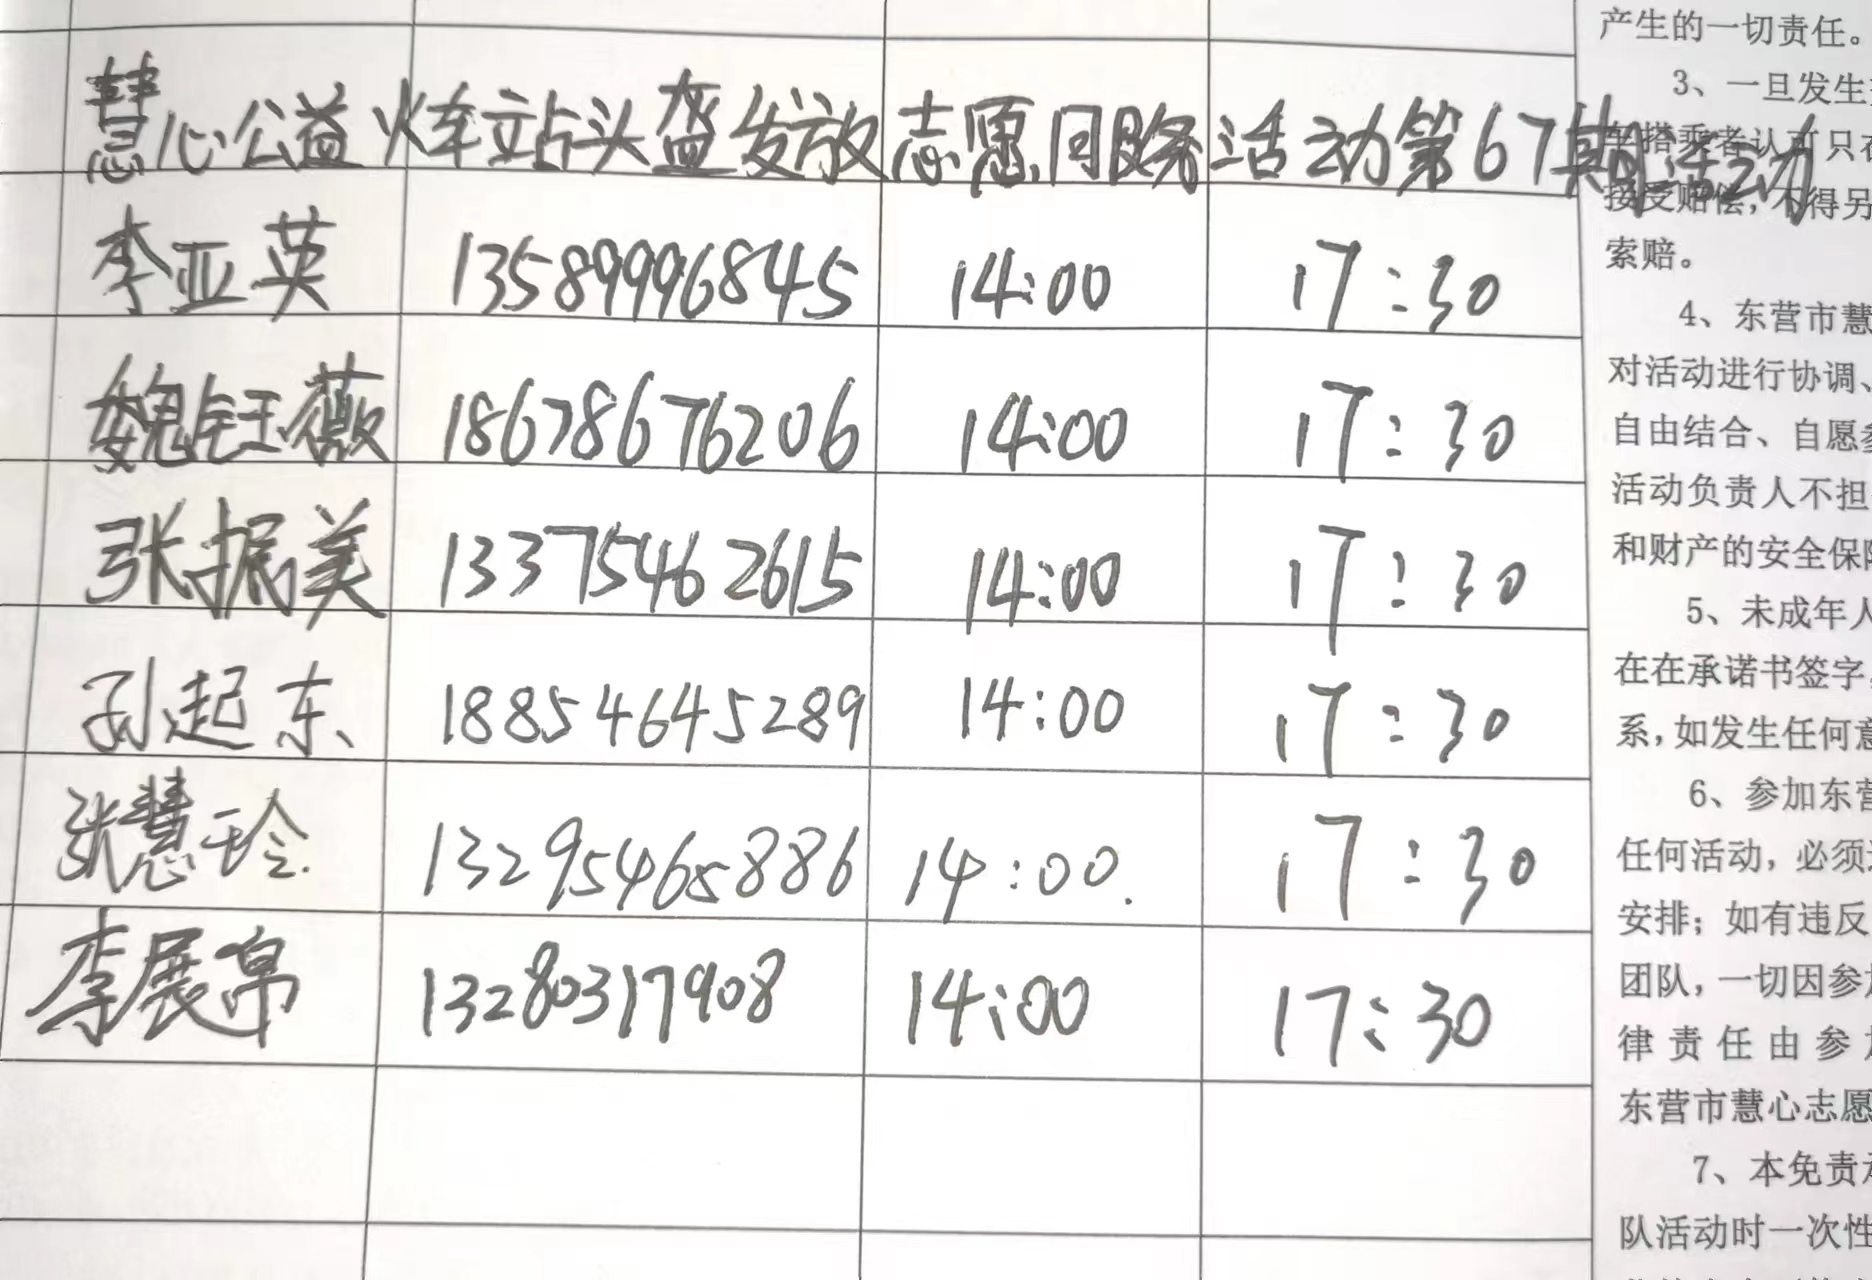 慧心公益火车站头盔发放志愿服务活动第67期活动
李亚英 13589996845 14:00 17:30
魏钰薇 18678676206 14:00 17:30
张振美 13375462615 14:00 17:30
孙起东 18854645289 14:00 17:30
张慧玲 13295465886 14:00. 17:30
李展帛 13280317908 14:00 17:30
产生的一切责任。
3、一旦发生
搭乘者认可只在
接受赔偿，不得另
索赔。
4、东营市慧
对活动进行协调、
自由结合、自愿参
活动负责人不担
和财产的安全保障
5、未成年人
在在承诺书签字，
系，如发生任何意
6、参加东营
任何活动，必须
安排；如有违反
团队，一切因参加
律责任由参加
东营市慧心志愿
7、本免责承
队活动时一次性